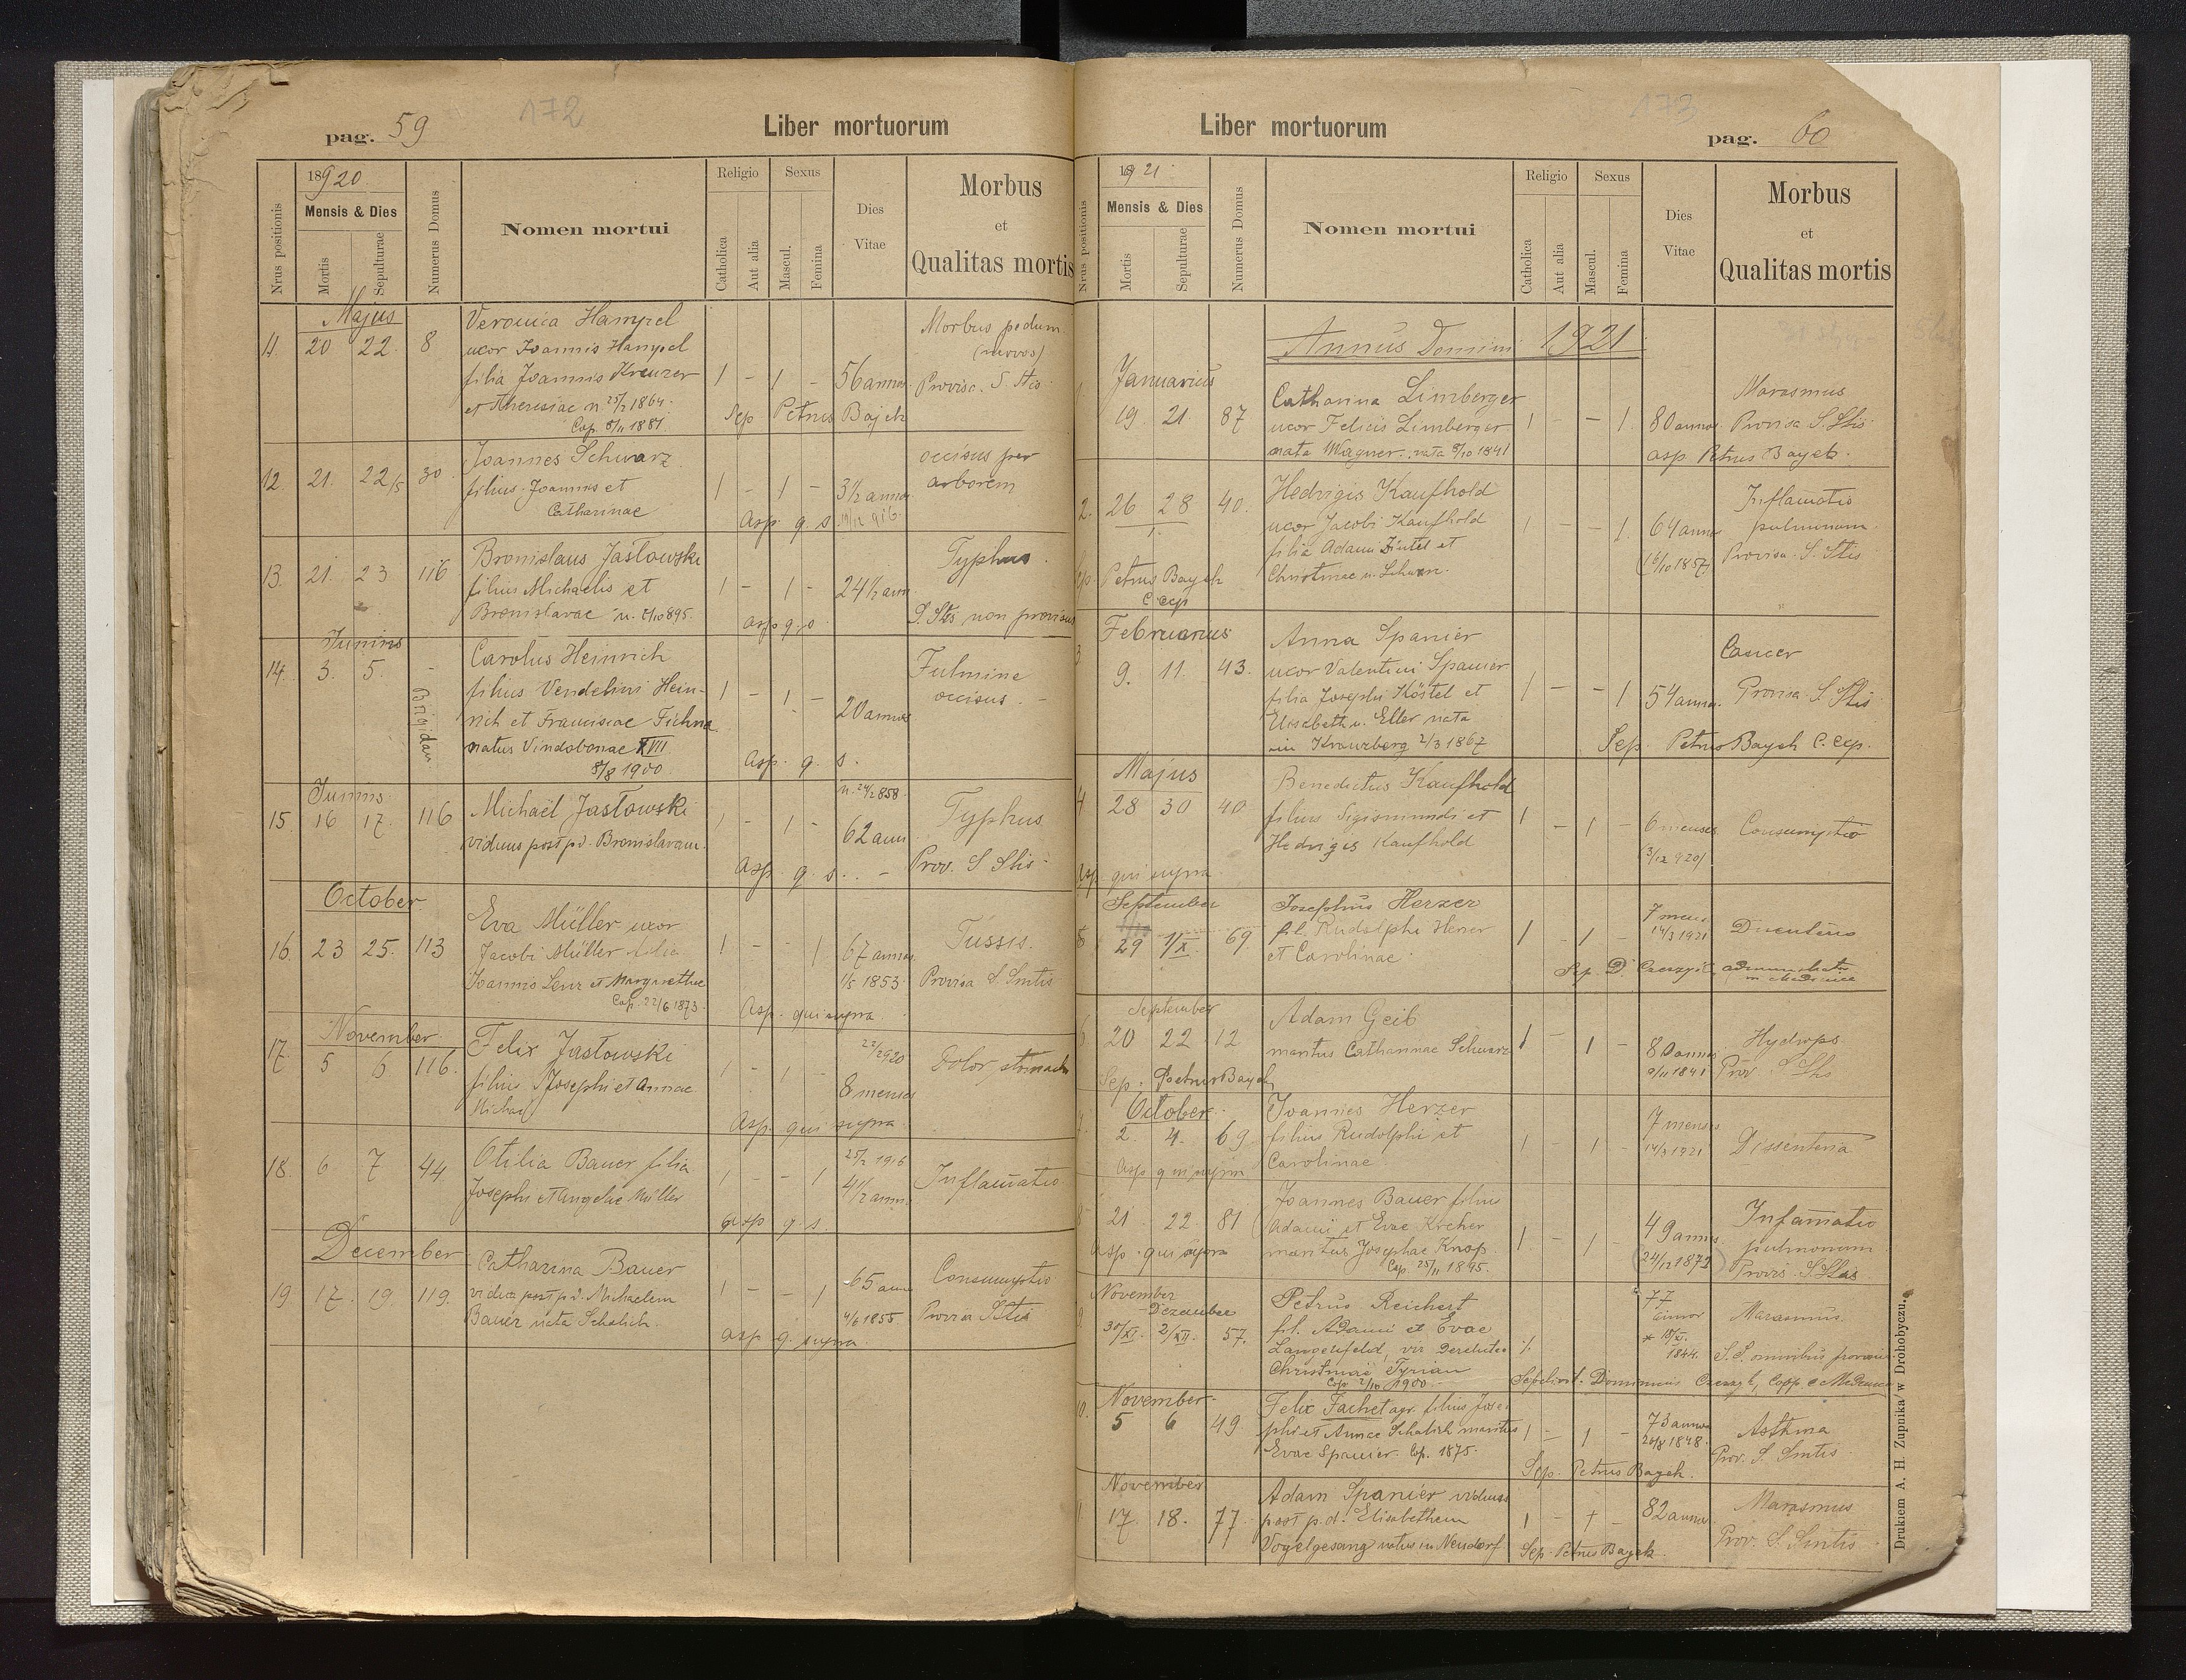 172
pag. 59
Liber mortuorum
Nrus positionis
1920
Mensis & Dies
Mortis
Sepulturae
Numerus Domus
Nomen mortui
Religio
Catholica
Aut alia
Sexus
Mascul.
Femina
Dies
Vitae
Morbus
et
Qualitas mortis
Majus
11. 20 22. 8
Veronica Hampel
uxor Joannis Hampel
filia Joannis Kreuzer
et Theresiae n 25/2 1864.
Cop. 8/11 1881.
1 - 1 - 56 annor.
Morbus pedum
Provisa. S. Stis
Sep Petrus Bajch
12. 21. 22/5 30
Joannes Schwarz
filius Joannis et
Catharinae
1 - 1 - 3 1/2 annor
occisus per
arborem
Asp. q. s.
13. 21. 23 116
Bronislaus Jasłowski
filius Michaelis et
Bronislavae
1 - 1 - 24 1/2 ann
Typhus
S. Stis non provisus
Asp q. s.
Junius
14. 3. 5. -
Brigidau.
Carolus Heinrich
filius Vendelini Hein-
rich et Franciscae Fichna
natus Vindobonae XVIII
8/8 1900
1 - 1 - 20 annos
Fulmine
occisus. -
Asp. q. s.
Junius
15. 16 17. 116
Michaël Jasłowski
viduus post pd. Bronislavam.
1 - 1 -
n. 24/2 858.
62 ann
Typhus
Prov. S Stis
Asp. q. s.
October
16. 23 25. 113
Eva Müller uxor
Jacobi Müller filia
Joannis Lenz et Margarethae
Cop. 22/6 1873.
1 - - 1 67 annor.
1/5 1853
Tussis.
Provisa S. Smtis
Asp. qui supra
November
17. 5 6 116.
Felix Jasłowski
filius Josephi et Annae
Michael
1 - 1 -
22/2 920
8 menses
Dolor stomachi
Asp. qui supra
18. 6 7 44
Otilia Bauer filia
Josephi et Angelae Müller
1 - - 1
25/2 1916
4 1/2 annor.
Inflamatio
asp q. s.
December
19 17. 19 119.
Catharina Bauer
vidua post pd. Michaelem
Bauer nata Schalich.
1 - - 1 65 anno
4/6 1855
Consumptio
Provisa Stis
Asp q. supra
173
Liber mortuorum
pag. 60
Nrus positionis
1921
Mensis & Dies
Mortis
Sepulturae
Numerus Domus
Nomen mortui
Religio
Catholica
Aut alia
Sexus
Mascul.
Femina
Dies
Vitae
Morbus
et
Qualitas mortis
Annus Domini 1921
Januarius
1 19. 21 87
Catharina Limberger
uxor Felicis Limberger
nata Wagner. nata 8/10 1841
1 - - 1. 80 annor.
Marasmus
Provisa S. Stis
asp. Petrus Baych.
2. 26 28 40.
Hedvigis Kaufhold
uxor Jacobi Kaufhold
filia Adami Zintel et
Christinae n. Schwan.
1 - - 1. 64 annor
(6/10 1857)
Inflamatio
pulmonum.
Provisa S. Stis
Sep. Petrus Baych
C. exp
Februarius
3 9. 11. 43.
Anna Spanier
uxor Valentini Spanier
filia Josephi Köstel et
Elisabeth n. Eller nata
in Kranzberg 2/3 1867
1 - - 1 54 annor.
Cancer
Provisa S. Stis
Sep. Petrus Baych C. exp.
Majus
4 28 30 40
Benedictus Kaufhold
filius Sigismundi et
Hedvigis Kaufhold
1 - 1 - 6 menses
(3/12 920)
Consumptio
Asp. qui supra
September
5 29 1/X. 69
Josephus Herzer
fil. Rudolphi Herzer
et Carolinae
1 - 1 -
7 mens
14/3 1921
Sep. D.
September
6 20 22 12
Adam Geib
maritus Catharinae Schwarz
1 - 1 - 80 annos
9/11 1841
Hydrops
Prov. S. Stis
Sep. Petrus Baych
October
7. 2. 4. 69
Joannes Herzer
filius Rudolphi et
Carolinae
1 - 1 -
7 mens
14/3 1921
Dissenteria
Asp qui supra
8 21 22 81
Joannes Bauer filius
Adami et Evae Krcher
maritus Josephae Knop.
Cop. 25/11 1895.
1 - 1 - 49 annos.
(24/12 1872)
Infamatio
pulmonum
Provis. S. Stis
Asp. qui supra
November
-Dezember
9. 30/XI. 2/XII. 57.
Petrus Reichert
fil. Adami et Evae
Langenfeld, vir
Christinae Tyrian
Cop. 2/10 1900
77
annor
* 18/X.
1844.
Marasmus.
S.S. omnibus
Sepelivit. Dominicus
November
10. 5 6 49.
Felix Fachet agr. filius Jose-
phi et Annae Schalich maritus
Evae Spanier. Cop. 1875.
1 - 1 - 73 annos
20/8 1848.
Asthma
Prov. S. Smtis
Sep. Petrus Baych.
November
11 17. 18. 77
Adam Spanier viduus
post p.d. Elisabetham
Vogelgesang natus in Neudorf
1 - 1 - 82 annor.
Marasmus
Prov. S. Smtis
Sep. Petrus Baych.
Drukiem A. H. Zupnika w Drohobyczu.